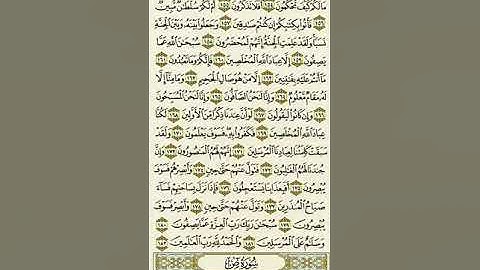 مَا لَكُمْ كَيْفَ تَحْكُمُونَ ١٥٤ أَفَلَا تَذَكَّرُونَ ١٥٥ أَمْ لَكُمْ سُلْطَٰنٌ مُّبِينٌ ١٥٦
فَأْتُوا۟ بِكِتَٰبِكُمْ إِن كُنتُمْ صَٰدِقِينَ ١٥٧ وَجَعَلُوا۟ بَيْنَهُۥ وَبَيْنَ ٱلْجِنَّةِ
نَسَبًا وَلَقَدْ عَلِمَتِ ٱلْجِنَّةُ إِنَّهُمْ لَمُحْضَرُونَ ١٥٨ سُبْحَٰنَ ٱللَّهِ عَمَّا
يَصِفُونَ ١٥٩ إِلَّا عِبَادَ ٱللَّهِ ٱلْمُخْلَصِينَ ١٦٠ فَإِنَّكُمْ وَمَا تَعْبُدُونَ ١٦١
مَآ أَنتُمْ عَلَيْهِ بِفَٰتِنِينَ ١٦٢ إِلَّا مَنْ هُوَ صَالِ ٱلْجَحِيمِ ١٦٣ وَمَا مِنَّآ إِلَّا
لَهُۥ مَقَامٌ مَّعْلُومٌ ١٦٤ وَإِنَّا لَنَحْنُ ٱلصَّآفُّونَ ١٦٥ وَإِنَّا لَنَحْنُ ٱلْمُسَبِّحُونَ
١٦٦ وَإِن كَانُوا۟ لَيَقُولُونَ ١٦٧ لَوْ أَنَّ عِندَنَا ذِكْرًا مِّنَ ٱلْأَوَّلِينَ ١٦٨ لَكُنَّا
عِبَادَ ٱللَّهِ ٱلْمُخْلَصِينَ ١٦٩ فَكَفَرُوا۟ بِهِۦ فَسَوْفَ يَعْلَمُونَ ١٧٠ وَلَقَدْ
سَبَقَتْ كَلِمَتُنَا لِعِبَادِنَا ٱلْمُرْسَلِينَ ١٧١ إِنَّهُمْ لَهُمُ ٱلْمَنصُورُونَ ١٧٢ وَإِنَّ
جُندَنَا لَهُمُ ٱلْغَٰلِبُونَ ١٧٣ فَتَوَلَّ عَنْهُمْ حَتَّىٰ حِينٍ ١٧٤ وَأَبْصِرْهُمْ فَسَوْفَ
يُبْصِرُونَ ١٧٥ أَفَبِعَذَابِنَا يَسْتَعْجِلُونَ ١٧٦ فَإِذَا نَزَلَ بِسَاحَتِهِمْ فَسَآءَ
صَبَاحُ ٱلْمُنذَرِينَ ١٧٧ وَتَوَلَّ عَنْهُمْ حَتَّىٰ حِينٍ ١٧٨ وَأَبْصِرْ فَسَوْفَ
يُبْصِرُونَ ١٧٩ سُبْحَٰنَ رَبِّكَ رَبِّ ٱلْعِزَّةِ عَمَّا يَصِفُونَ ١٨٠
وَسَلَٰمٌ عَلَى ٱلْمُرْسَلِينَ ١٨١ وَٱلْحَمْدُ لِلَّهِ رَبِّ ٱلْعَٰلَمِينَ ١٨٢
سُورَةُ صٓ